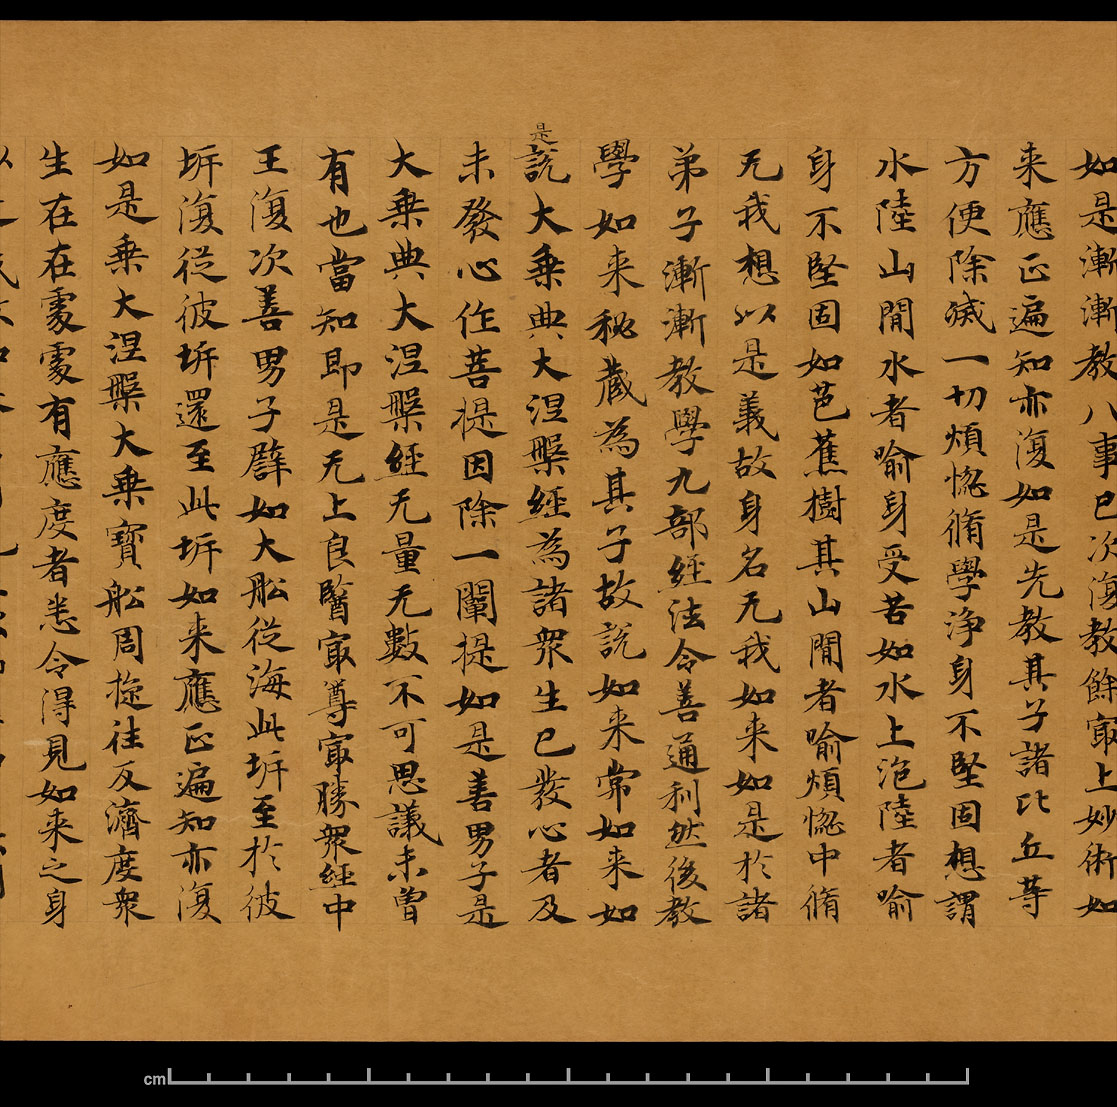 如是漸漸教八事已次復教餘冣上妙術如
来應正遍知亦復如是先教其子諸比丘等
方便除滅一切煩惚脩學浄身不堅固想謂
水陸山間水者喻身受苦如水上泡陸者喻
身不堅固如芭蕉樹其山間者喻煩惚中脩
无我想以是義故身名无我如来如是於諸
弟子漸漸教學九部經法令善通利然後教
學如来秘蔵為其子故説如来常如来如
是說大乗典大涅槃經為諸衆生已發心者及
未發心作菩提因除一闡提如是善男子是
大乗典大涅槃經无量无數不可思議未曽
有也當知即是无上良醫冣尊冣勝衆經中
王復次善男子譬如大舩従海此垿至於彼
垿復従彼垿還至此垿如来應正遍知亦復
如是乗大涅槃大乗寳舩周旋往反濟度衆
生在在處處有應度者悉令得見如来之身